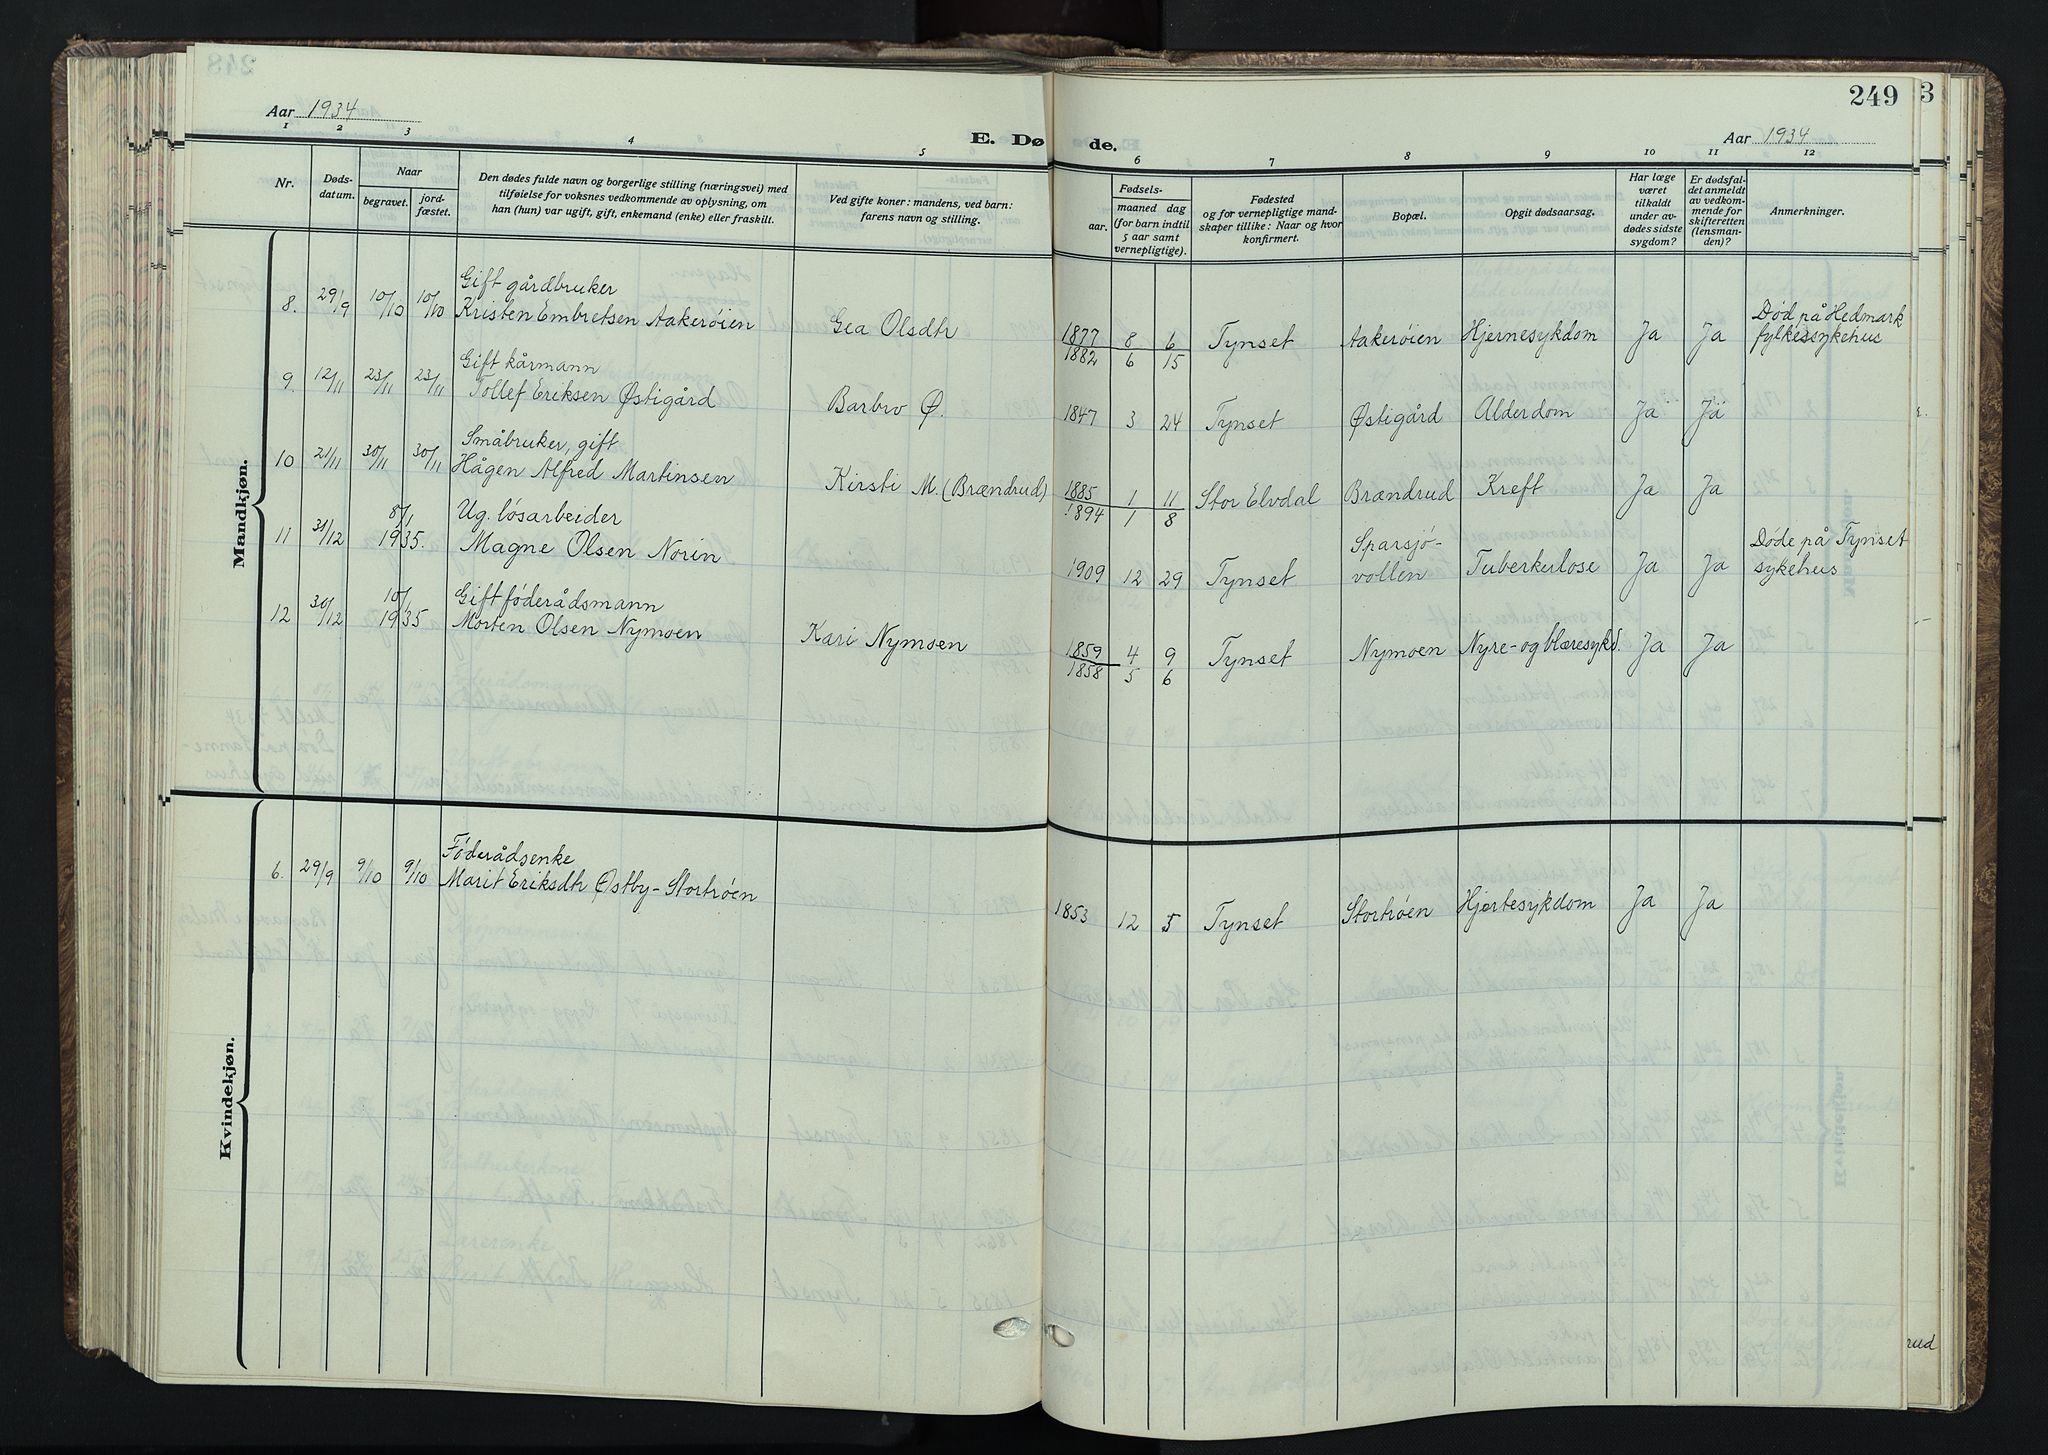 Aar 1934
249
3
E. Dø de.
Aar 1934
1 2 3 4 5 6 7 8 9 10 11 12
Nr.
Døds-
datum.
Naar
begravet.
jord-
fæstet.
Den dødes fulde navn og borgerlige stilling (næringsvei) med
tilføielse for voksnes vedkommende av oplysning, om
han (hun) var ugift, gift, enkemand (enke) eller fraskilt.
Ved gifte koner: mandens, ved barn:
farens navn og stilling.
Fødsels-
aar.
maaned dag
(for barn indtil
5 aar samt
vernepligtige).
Fødested
og for vernepligtige mand-
skaper tillike: Naar og hvor
konfirmert.
Bopæl.
Opgit dødsaarsag.
Har læge
været
tilkaldt
under av-
dødes sidste
sygdom?
Er dødsfal-
det anmeldt
av vedkom-
mende for
skifteretten
(lensman-
den)?
Anmerkninger.
Mandkjøn.
Gift gårdbruker
8. 29/9 10/10 10/10 Kristen Embretsen Aakerøien Gea Olsdtr 1877 8 6 Tynset Aakerøien Hjernesykdom Ja Ja Død på Hedmark
1882 6 15 fylkessykehus
Gift kårmann
9. 12/11 23/11 23/11 Tollef Eriksen Østigård Barbro Ø. 1847 3 24 Tynset Østigård Alderdom Ja Ja
Småbruker, gift
10 21/11 30/11 30/11 Hågen Alfred Martinsen Kirsti M. (Brændrud) 1885 1 11 Stor Elvdal Brændrud Kreft Ja Ja
1894 1 8
8/1 Ug. løsarbeider Sparsjø- Døde på Tynset
11 31/12 1935. Magne Olsen Norin 1909 12 29 Tynset vollen Tuberkulose Ja Ja sykehus
10/1 Gift føderådsmann
12 30/12 1935 Morten Olsen Nymoen Kari Nymoen 1859 4 9 Tynset Nymoen Nyre- og blæresykd. Ja Ja
1858 5 6
Kvindekjøn.
Føderådsenke
6. 29/9 9/10 9/10 Marit Eriksdtr Østby-Stortrøen 1853 12 5 Tynset Stortrøen Hjertesykdom Ja Ja
rud